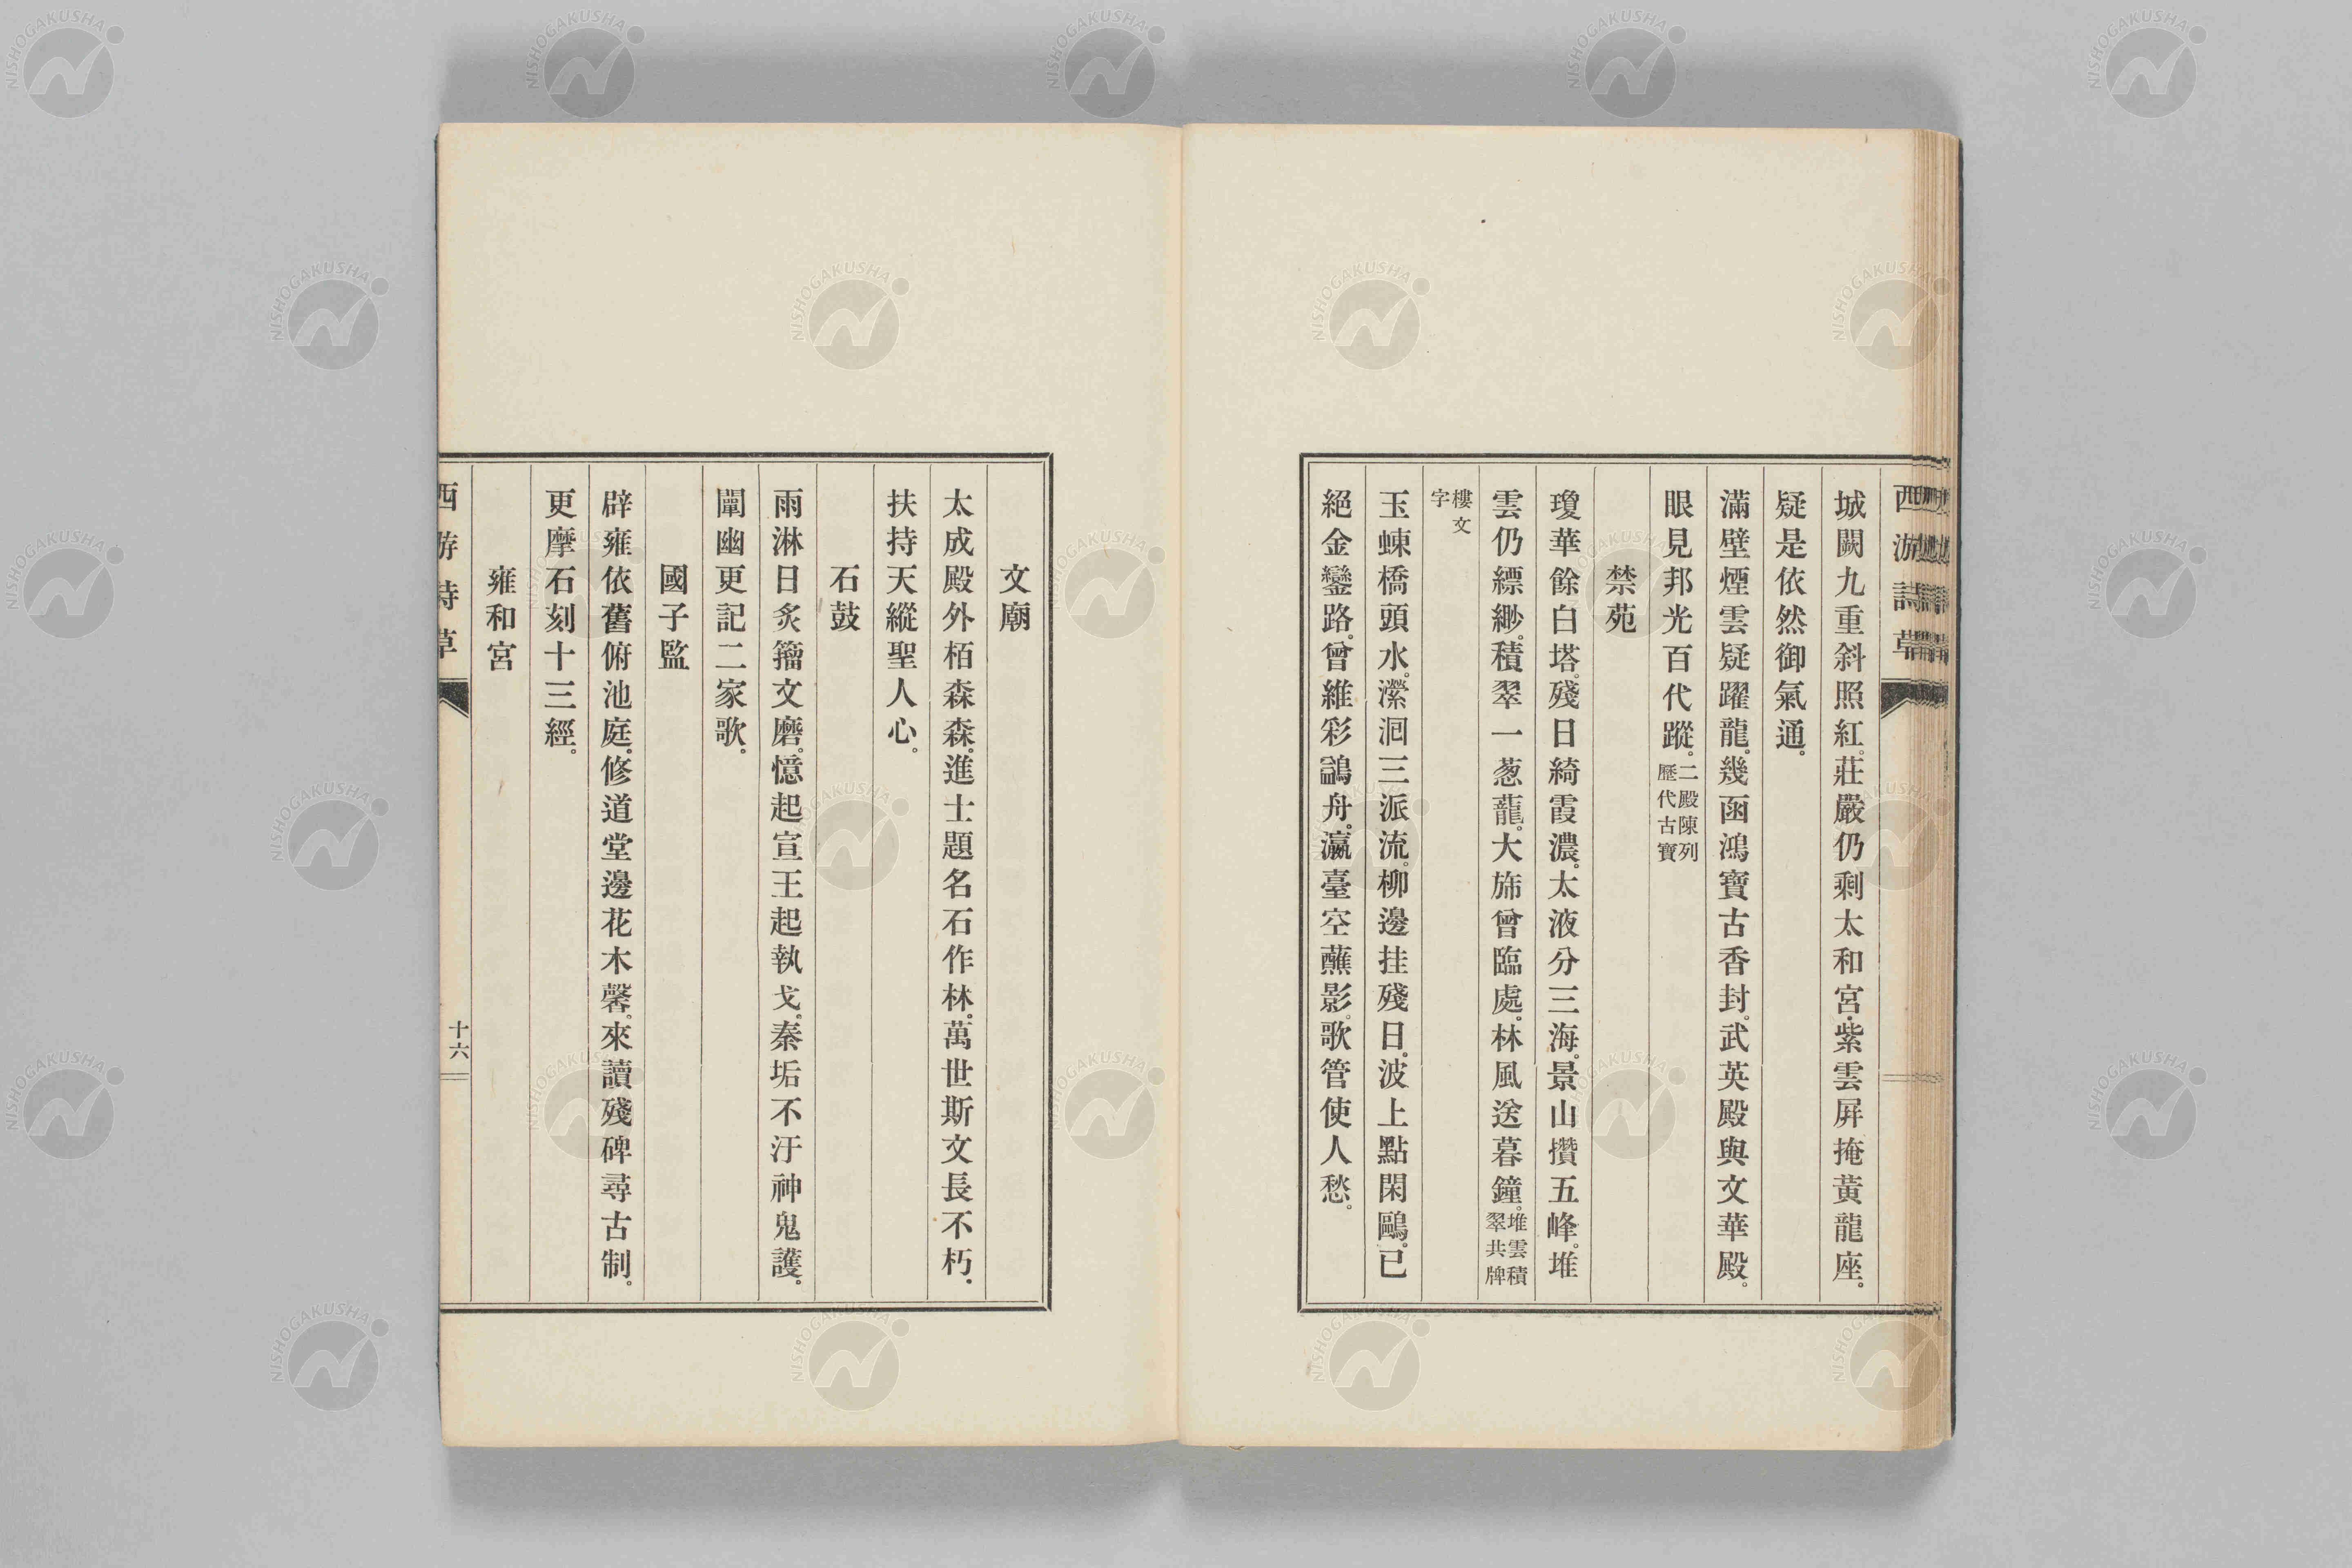 西游詩草
城闕九重斜照紅。莊嚴仍剩太和宮。紫雲屏掩黃龍座。
疑是依然御氣通。
滿壁煙雲疑躍龍。幾函鴻寶古香封。武英殿與文華殿。
眼見邦光百代蹤。二殿陳列歷代古寶
禁苑
瓊華餘白塔。殘日綺霞濃。太液分三海。景山攢五峰。堆
雲仍縹緲。積翠一葱蘢。大旆曾臨處。林風送暮鐘。堆雲積翠共牌
樓文字
玉蝀橋頭水。瀠洄三派流。柳邊挂殘日。波上點閑鷗。已
絕金鑾路。曾維彩鷁舟。瀛臺空蘸影。歌管使人愁。
文廟
太成殿外栢森森。進士題名石作林。萬世斯文長不朽。
扶持天縱聖人心。
石鼓
雨淋日炙籀文磨。憶起宣王起執戈。秦垢不汙神鬼護。
闡幽更記二家歌。
國子監
辟雍依舊俯池庭。修道堂邊花木馨。來讀殘碑尋古制。
更摩石刻十三經。
雍和宮
西游詩草
十六
NISHOGAKUSHA